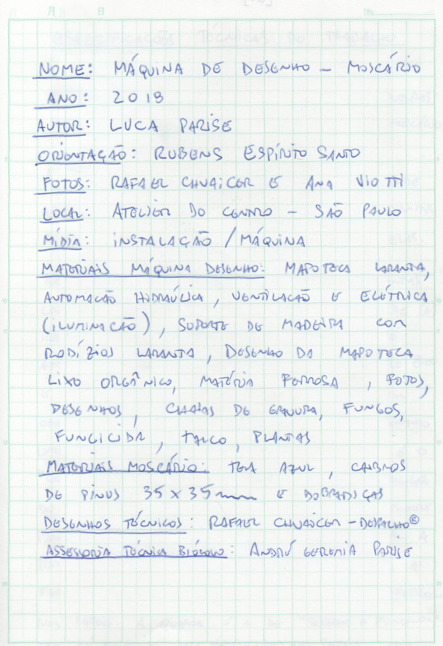 NOME: MÁQUINA DE DESENHO – MOSCÁRIO
ANO: 2019
AUTOR: LUCA PARISE
ORIENTAÇÃO: RUBENS ESPÍRITO SANTO
FOTOS: RAFAEL CHVAICER E ANA VIOTTI
LOCAL: ATELIER DO CENTRO – SÃO PAULO
MÍDIA: INSTALAÇÃO / MÁQUINA
MATERIAIS MÁQUINA DESENHO: MAPOTECA LARANJA,
AUTOMAÇÃO HIDRÁULICA, VENTILAÇÃO E ELÉTRICA
(ILUMINAÇÃO), SUPORTE DE MADEIRA COM
RODÍZIOS LARANJA, DESENHO DA MAPOTECA
LIXO ORGÂNICO, MATÉRIA FERROSA, FOTOS,
DESENHOS, CHAPAS DE GRAVURA, FUNGOS,
FUNGICIDA, TALCO, PLANTAS
MATERIAIS MOSCÁRIO: TELA AZUL, CAIBROS
DE PINUS 35 x 35 mm E DOBRADIÇAS
DESENHOS TÉCNICOS: RAFAEL CHVAICER – DESPALHO®
ASSESSORIA TÉCNICA BIÓLOGO: ANDRÉ GEREMIA PARISE